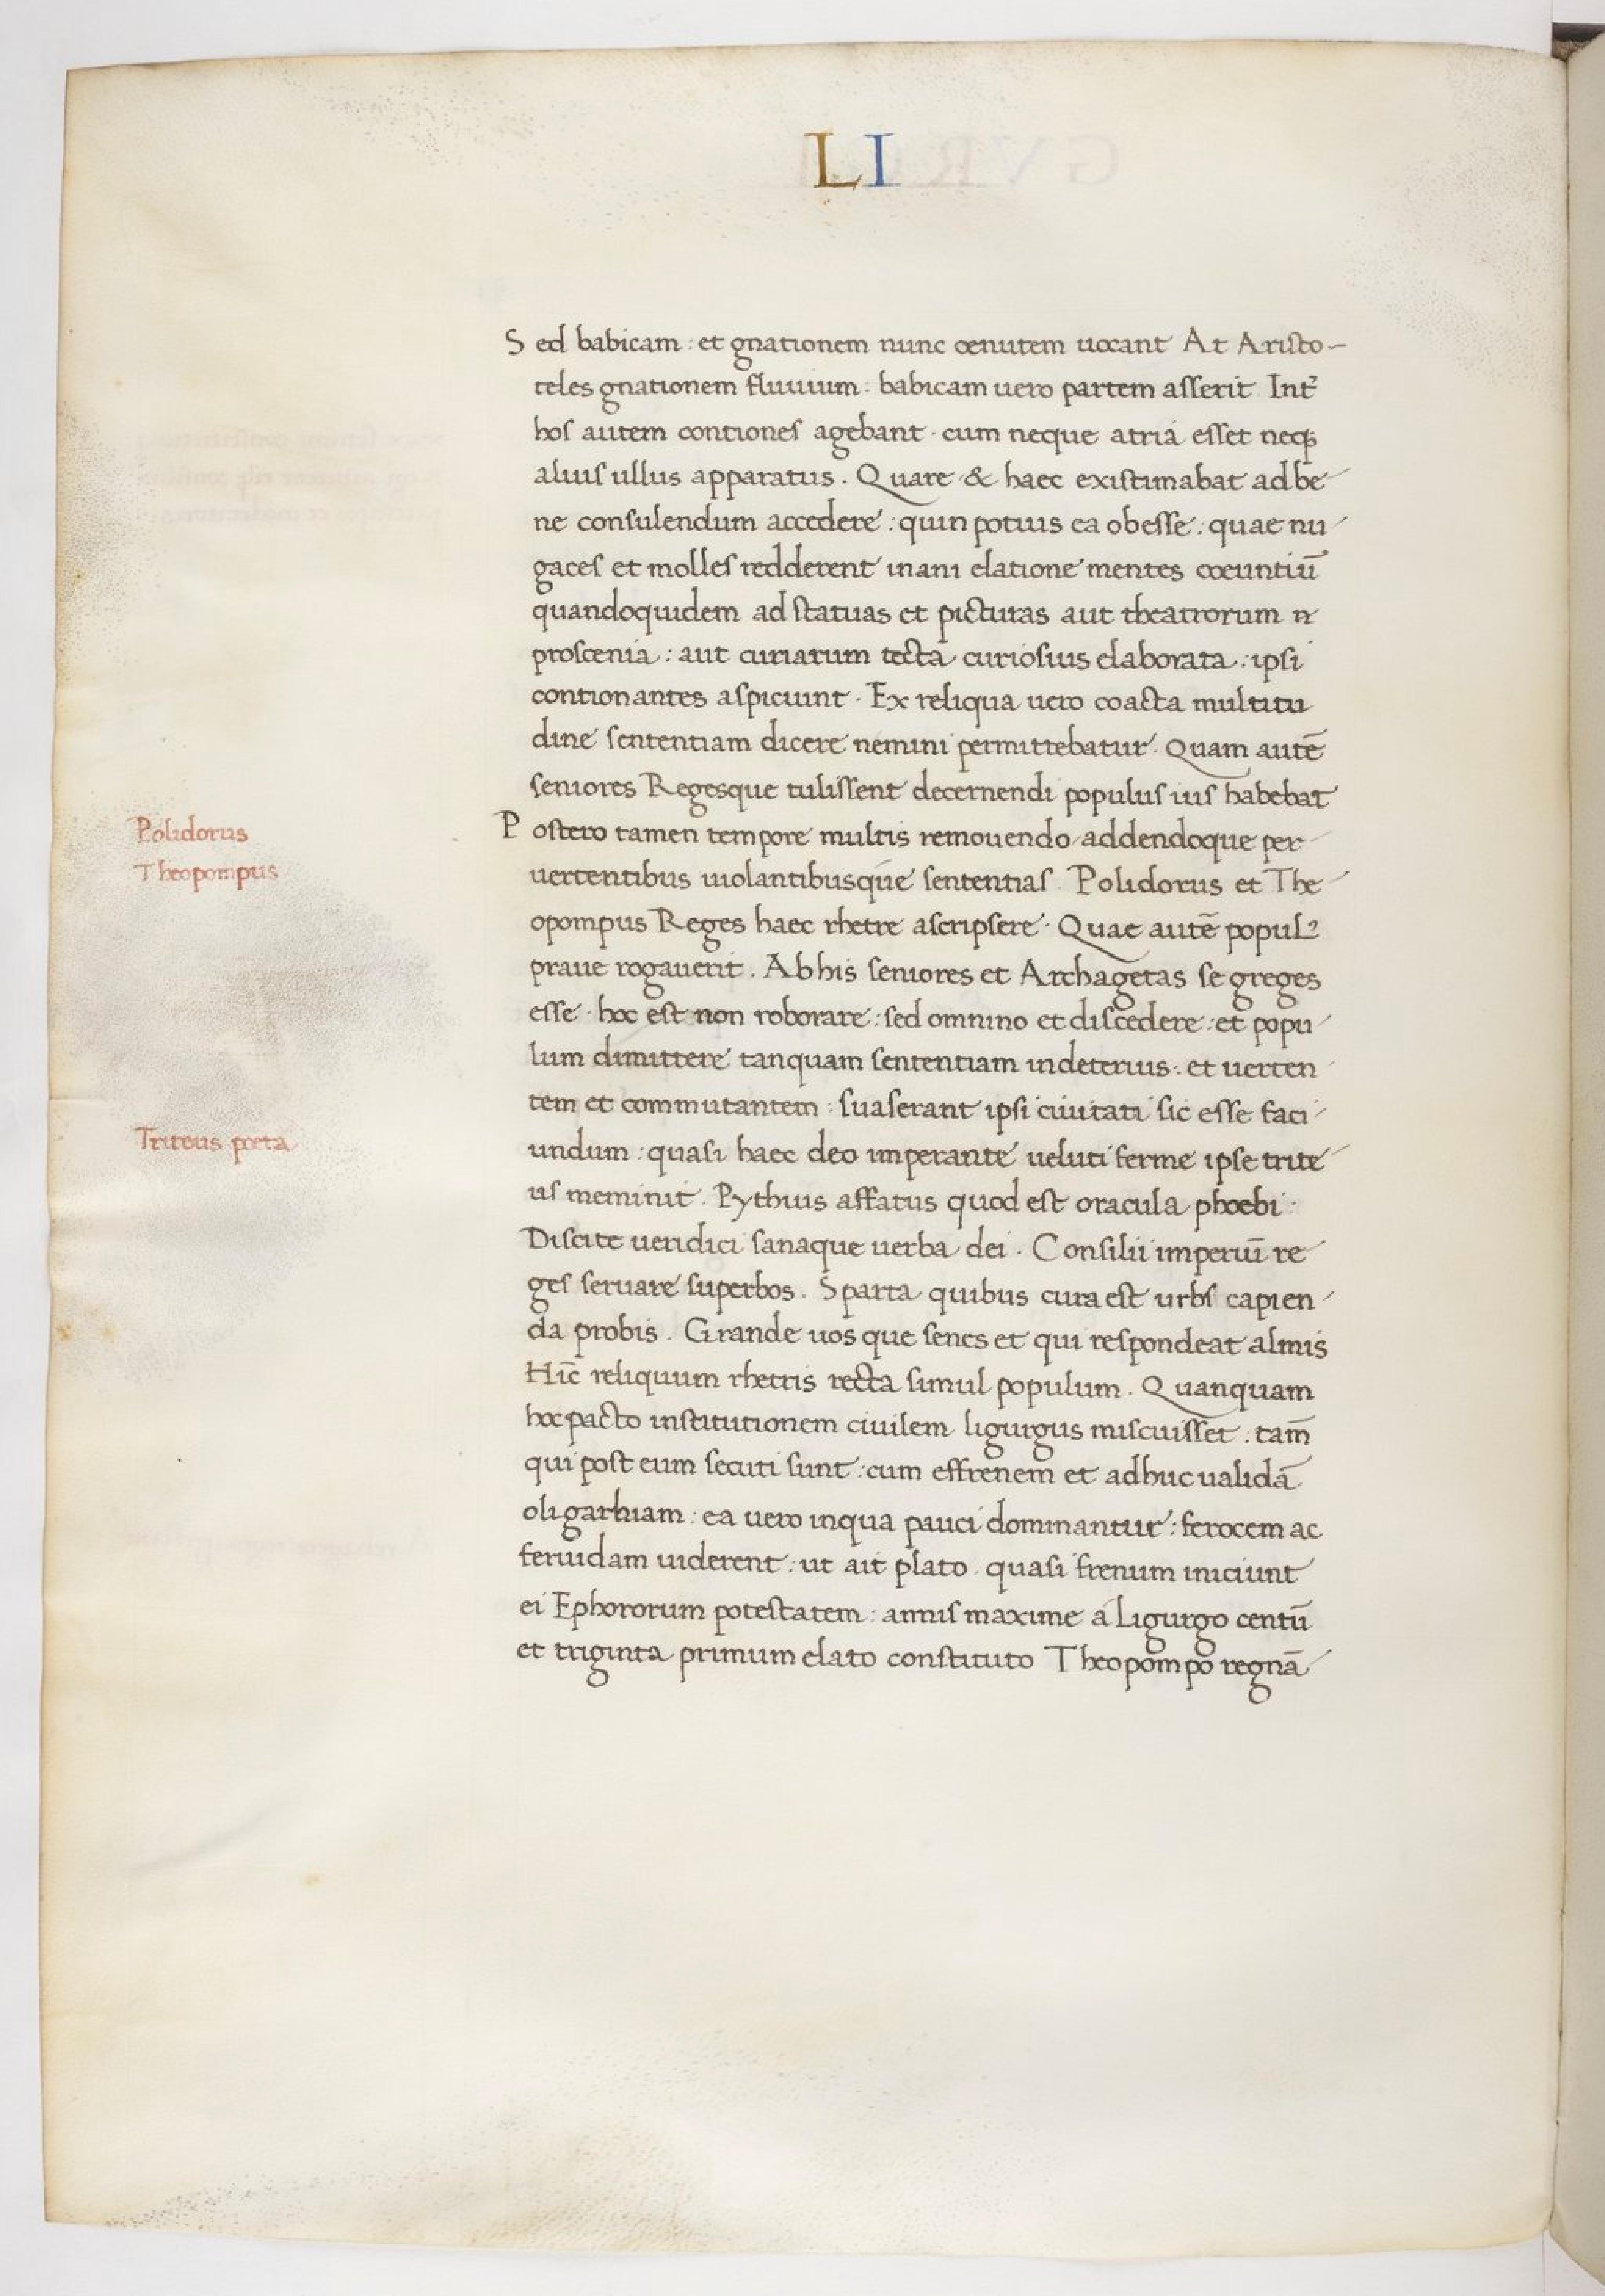 LI
Sed babicam: et gnationem nunc oenutem uocant At Aristo-
teles gnationem fluuium: babicam uero partem asserit Int̉
hos autem contiones agebant · cum neque atria esset neqꝫ
alius ullus apparatus. Quare & haec existimabat ad be
ne consulendum accedere: quin potius ea obesse: quae nu
gaces et molles redderent inani elatione mentes coeuntiū
quandoquidem ad statuas et picturas aut theatrorum
proscenia: aut curiarum tecta curiosius elaborata: ipsi
contionantes aspiciunt · Ex reliqua uero coacta multitu
dine sententiam dicere nemini permittebatur. Quam autē
seniores Regesque tulissent decernendi populus ius habebat
Polidorus
Theopompus
Postero tamen tempore multis remouendo addendoque per
uertentibus uiolantibusque sententias. Polidorus et The
opompus Reges haec rhetre ascripsere · Quae autē popul᾽
praue rogauerit. Ab his seniores et Archagetas se greges
esse · hoc est non roborare: sed omnino et discedere: et popu
lum dimittere tanquam sententiam in deterius: et uerten
tem et commutantem: suaserant ipsi ciuitati sic esse faci
Triteus poeta
undum: quasi haec deo imperante ueluti ferme ipse trite
us meminit. Pythius affatus quod est oracula phoebi:
Discite ueridici sanaque uerba dei. Consilii imperiū re
ges seruare superbos. Sparta quibus cura est urbs capien
da probis. Grande uos que senes et qui respondeat almis
Hic̄ reliquum rhetris recta simul populum. Quanquam
hoc pacto institutionem ciuilem ligurgus miscuisset: tam̄
qui post eum secuti sunt: cum effrenem et adhuc ualidā
oligarhiam: ea uero inqua pauci dominantur: ferocem ac
feruidam uiderent: ut ait plato · quasi frenum iniciunt
ei Ephororum potestatem: annis maxime a Ligurgo centū
et triginta primum elato constituto Theopompo regnā